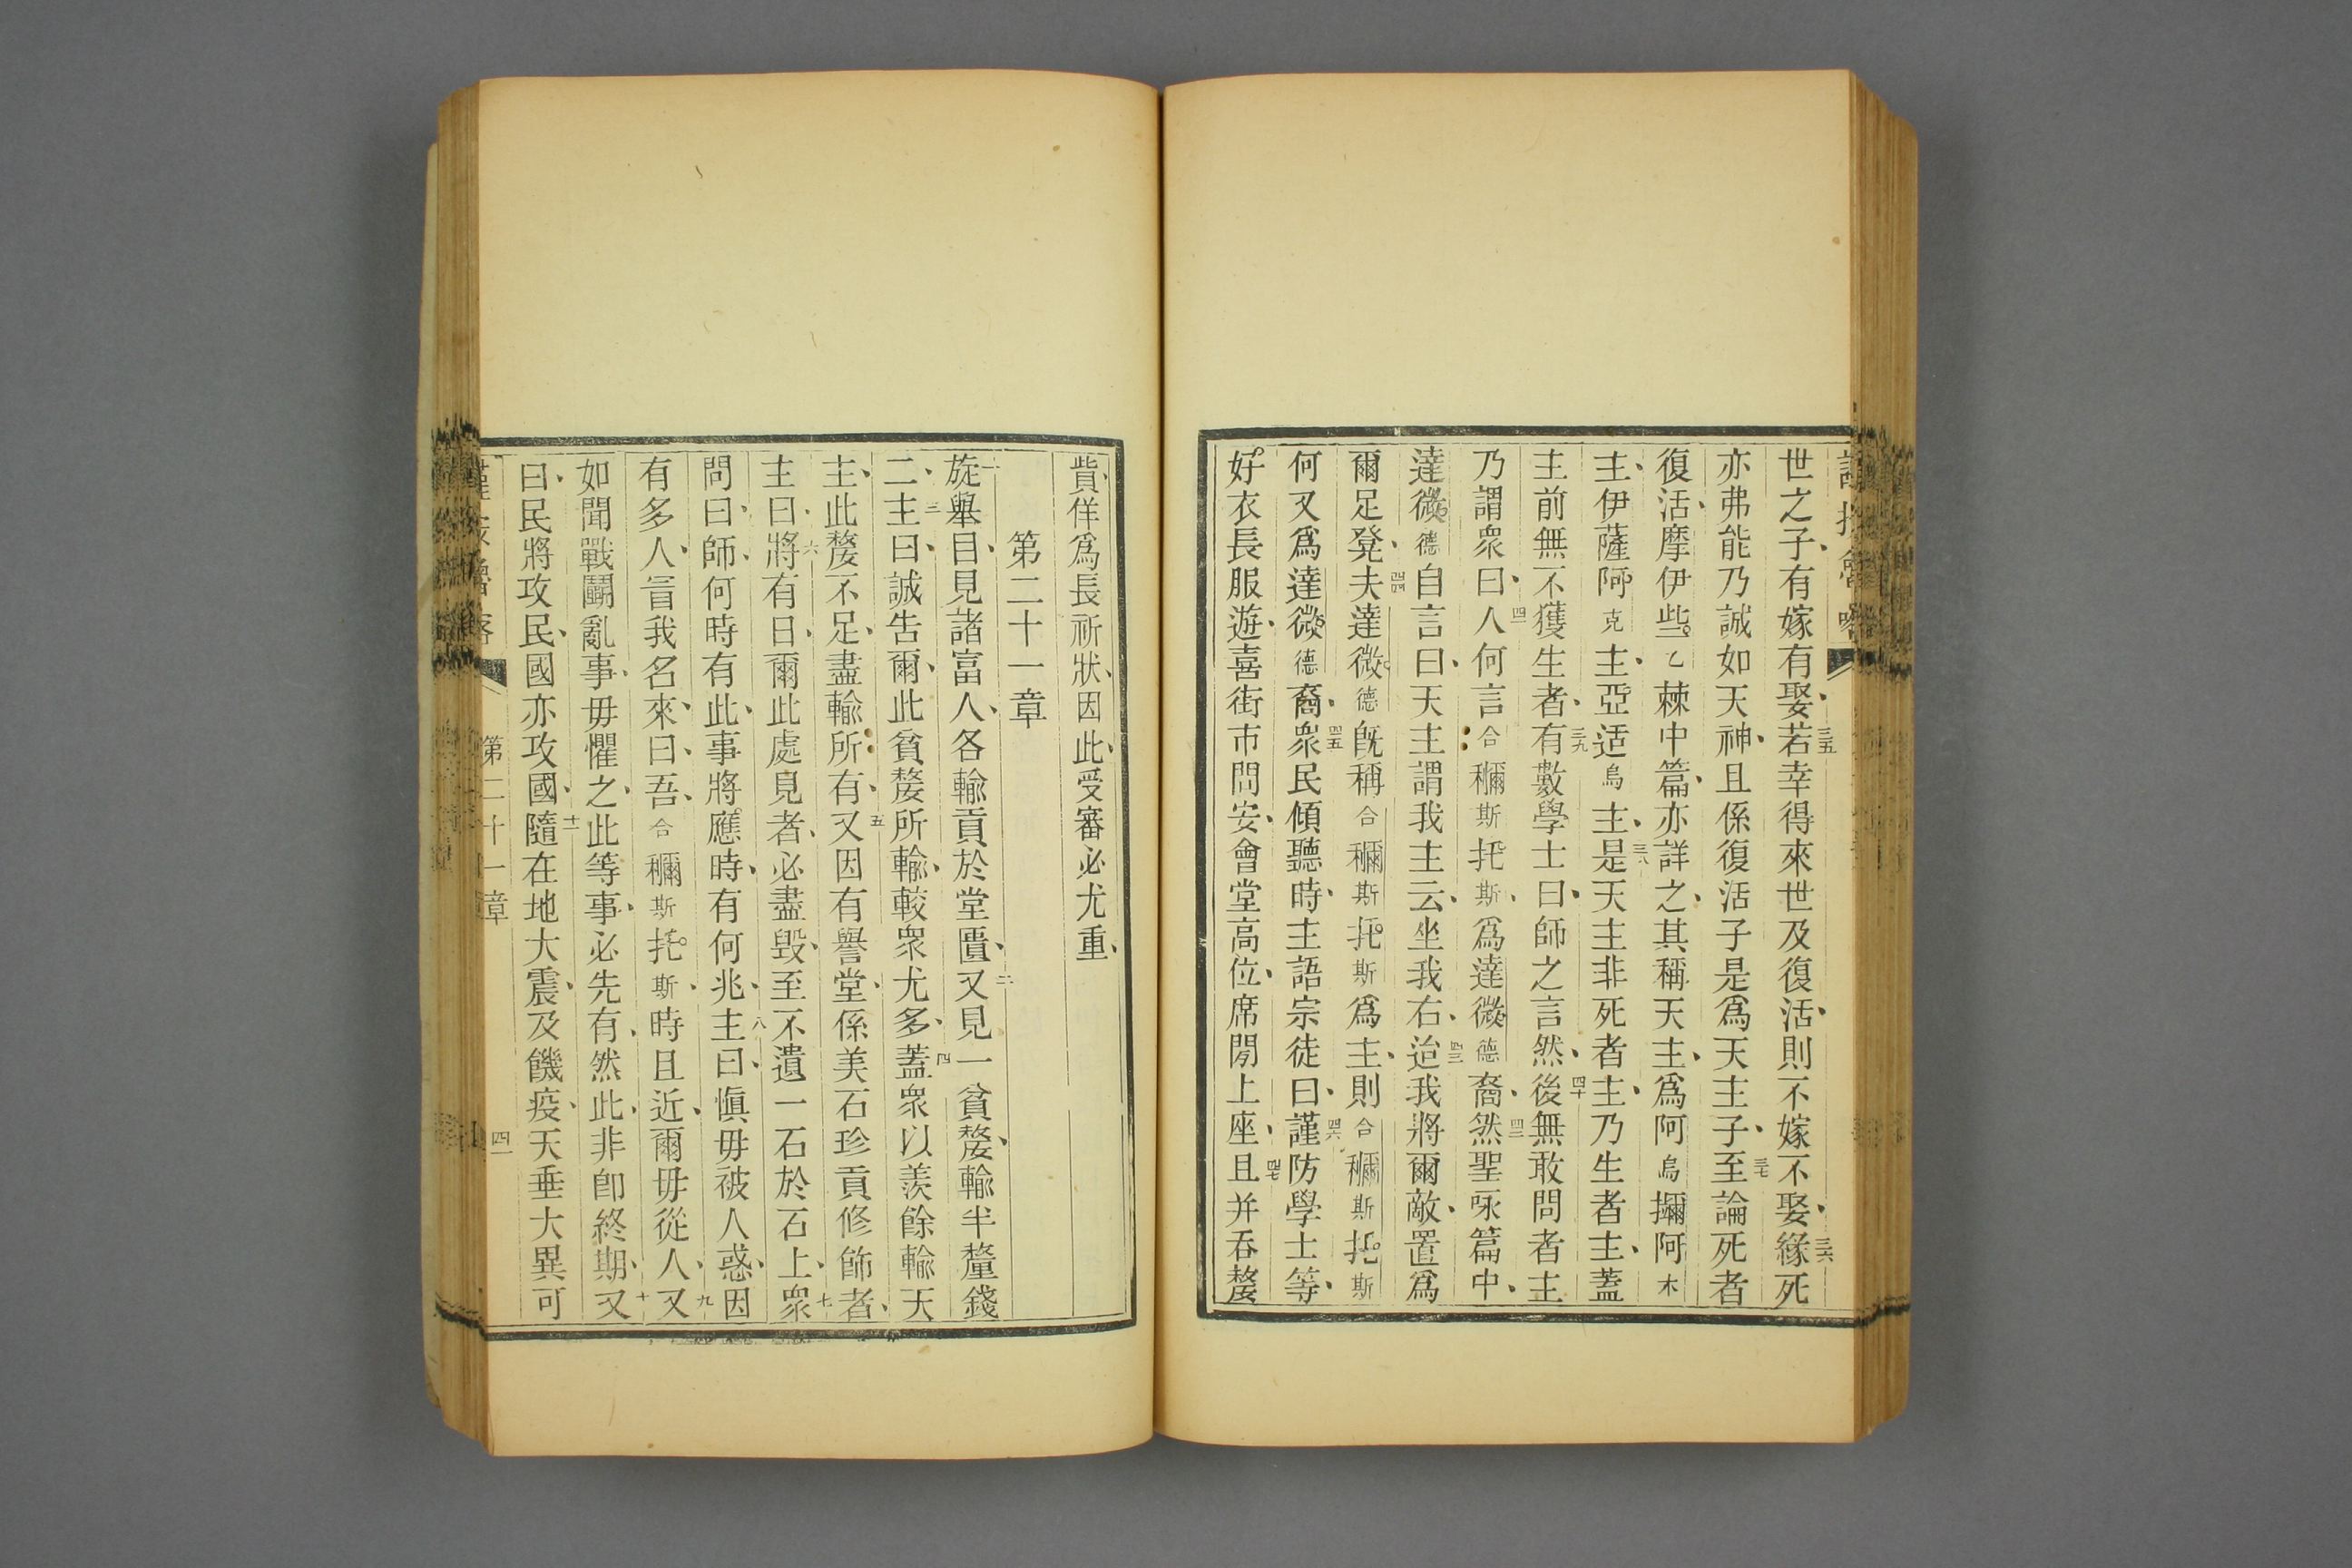 世之子、有嫁有娶、三五若幸得來世及復活、則不嫁不娶、三六緣死
亦弗能乃誠如天神、且係復活子是爲天主子、三七至論死者
復活、摩伊些乙棘中篇、亦詳之、其稱天主、爲阿烏攡阿木
主、伊薩阿克主、亞适烏主、三八是天主非死者主、乃生者主、蓋
主前無不獲生者、三九有數學士曰、師之言然、四十後無敢問者主
乃謂衆曰、四一人何言合穪斯托斯、爲達微德裔、四二然聖咏篇中、
達微德自言曰、天主謂我主云、坐我右、四三迨我將爾敵、置爲
爾足凳、四四夫達微德既稱合穪斯托斯爲主、則合穪斯托斯
何又爲達微德裔、四五衆民傾聽時、主語宗徒曰、四六謹防學士等、
好衣長服遊、喜街市問安、會堂高位、席閒上座、四七且并吞嫠
貲、佯爲長祈狀、因此、受審必尤重、
第二十一章
一旋舉目、見諸富人、各輸貢於堂匱、二又見一貧嫠、輸半釐錢
二、三主曰、誠告爾、此貧嫠所輸、較衆尤多、四蓋衆以羨餘輸天
主、此嫠不足、盡輸所有、五又因有譽堂、係美石珍貢修飾者、
主曰、六將有日、爾此處見者、必盡毀、至不遺一石於石上、七衆
問曰、師、何時有此、事將應時、有何兆、八主曰、愼毋被人惑、因
有多人、冒我名來、曰、吾、合穪斯托斯、時且近、爾毋從人、九又
如聞戰鬭亂事、毋懼之、此等事、必先有、然此、非卽終期、十又
曰、民將攻民、國亦攻國、十一隨在地大震、及饑疫、天垂大異可
第二十一章
四一